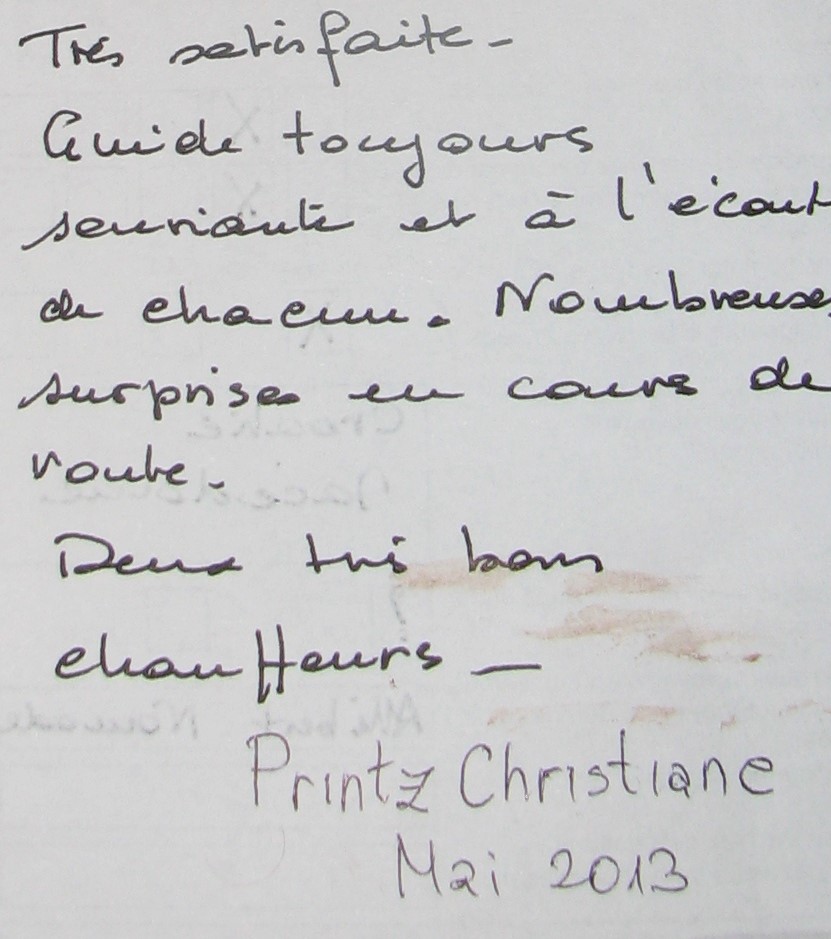 Très satisfaite -
Guide toujours
souriante et à l'écout
de chacun. Nombreuses
surprises en cours de
route.
Deux très bons
chauffeurs —
Printz Christiane
Mai 2013
Croatie
Macédoine
?
Alibert Nomade